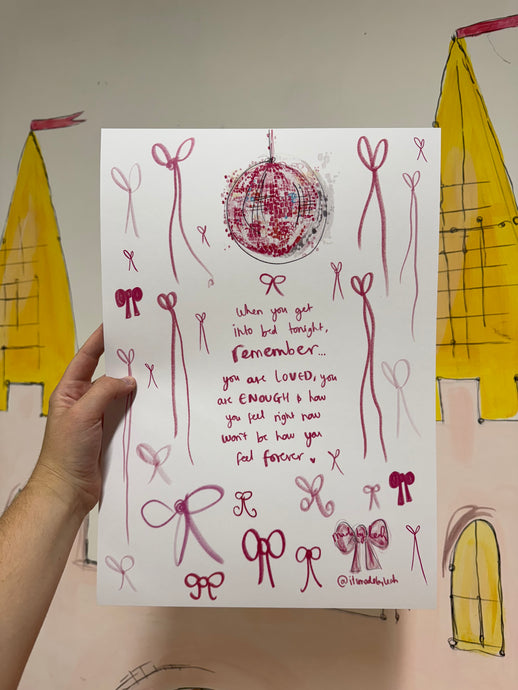 when you get
into bed tonight,
remember...
you are LOVED, you
are ENOUGH & how
you feel right now
won't be how you
feel forever